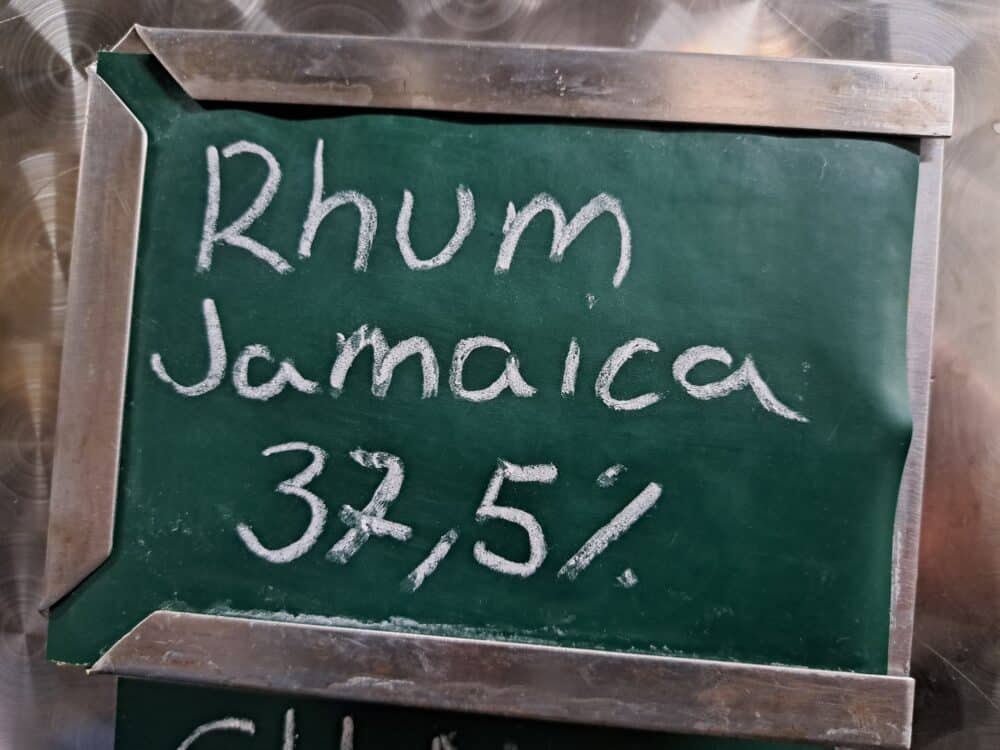 Rhum
Jamaica
37,5%